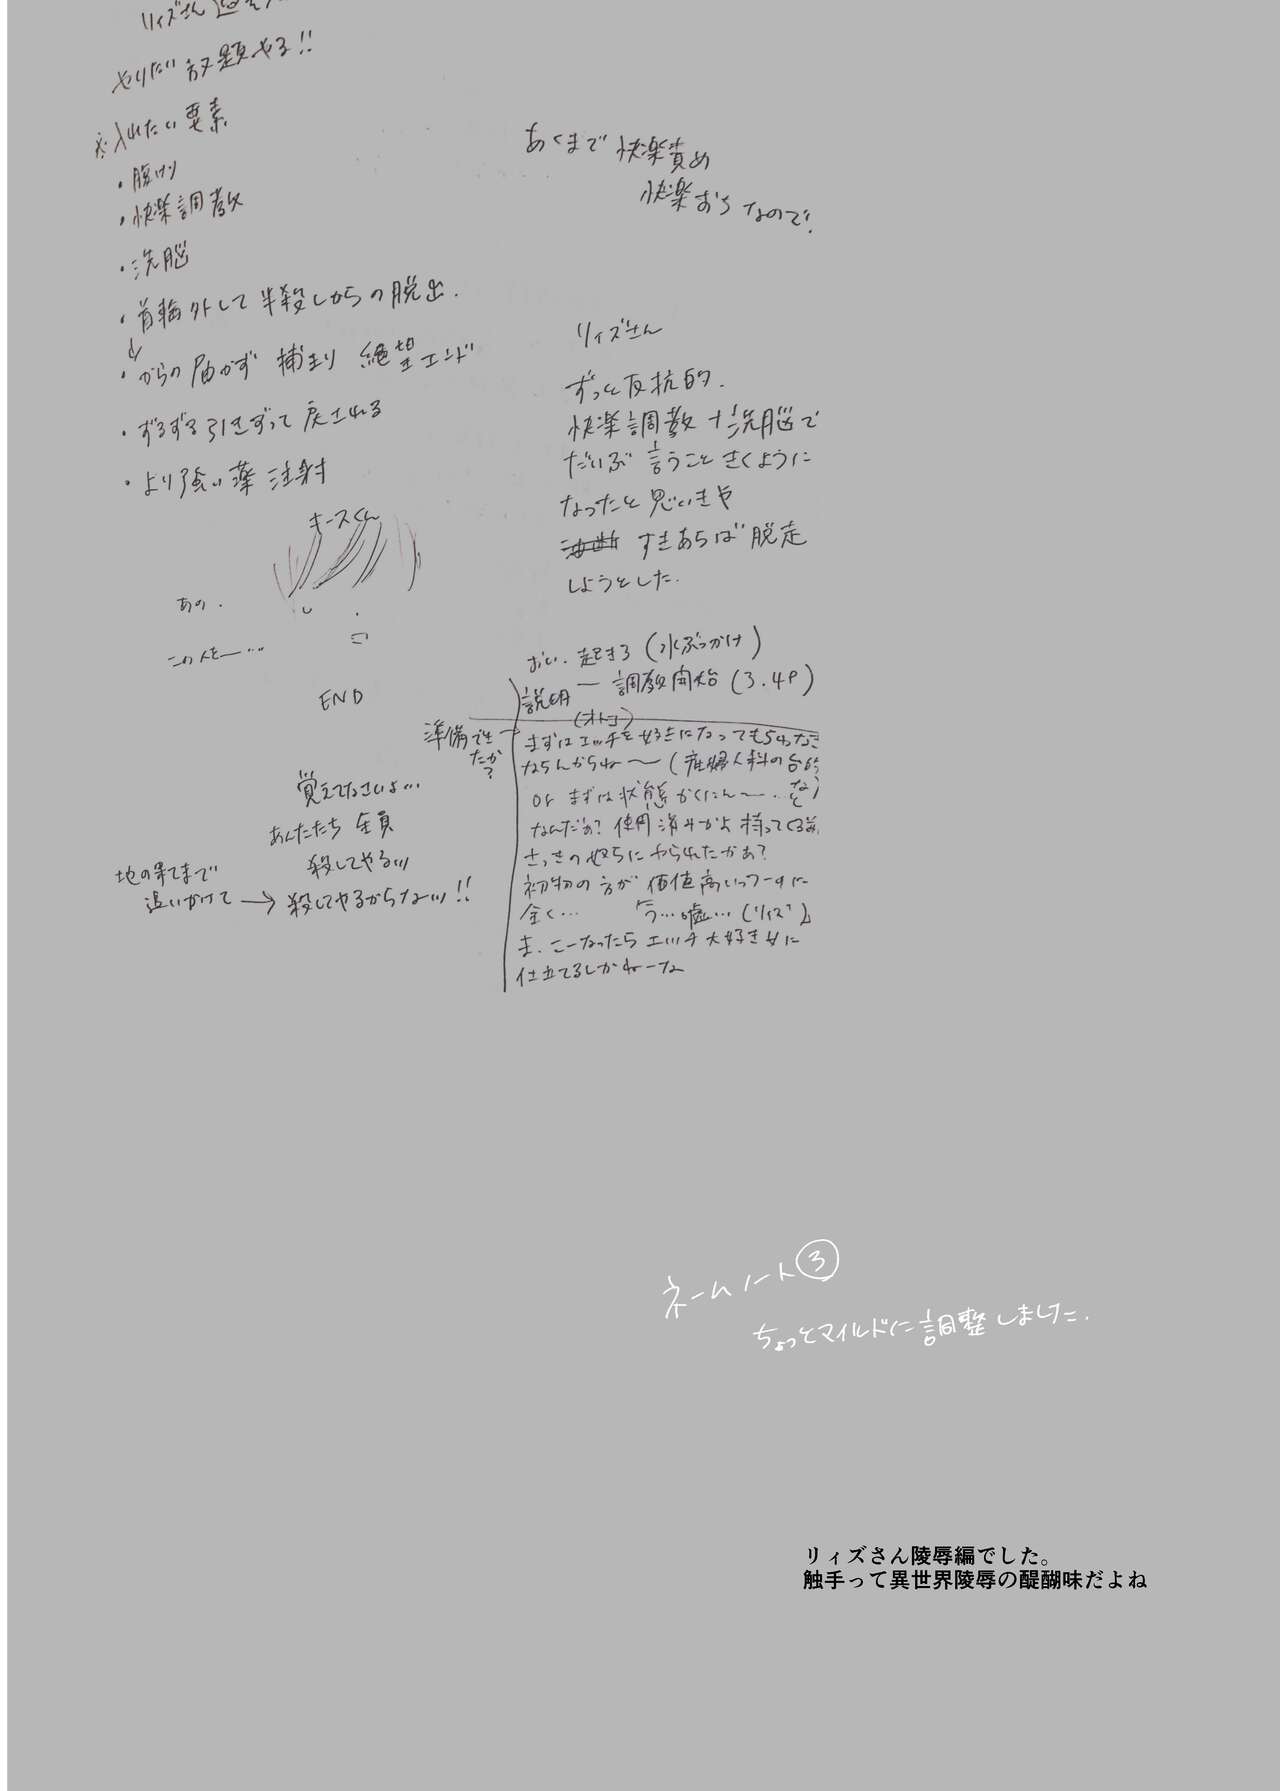 リィズさん
やりたい放題やる!!
※入れたい要素
・腹けり
・快楽調教
・洗脳
・首輪外して半殺しからの脱出.
・からの届かず 捕まり 絶望エンド
・ずるずる引きずって戻される
・より強い薬 注射
キースくん
あの.
この人を―…
END
あくまで 快楽責め
快楽おちなので!
リィズさん
ずっと反抗的.
快楽調教+洗脳で
だいぶ言うこときくように
なったと思いきや
油断 すきあらば脱走
しようとした.
おい.起きろ(水ぶっかけ)
説明 ― 調教開始(3.4P)
準備できたか?
(オトコ)
まずはエッチを好きになってもらわなきゃ
ならんからね～(産婦人科の台的な)
or まずは状態かくにん～..
なんだぁ? 使用済みかよ 持ってくる前
さっきの奴らにやられたかぁ?
初物の方が価値高いっつーのに
全く… 「う…嘘…(リィズ)」
ま、こーなったらエッチ大好き女に
仕立てるしかねーな
覚えてなさいよ…
あんたたち 全員
殺してやるッ
地の果てまで
追いかけて → 殺してやるからなッ!!
ネームノート③
ちょっとマイルドに調整しました.
リィズさん陵辱編でした。
触手って異世界陵辱の醍醐味だよね